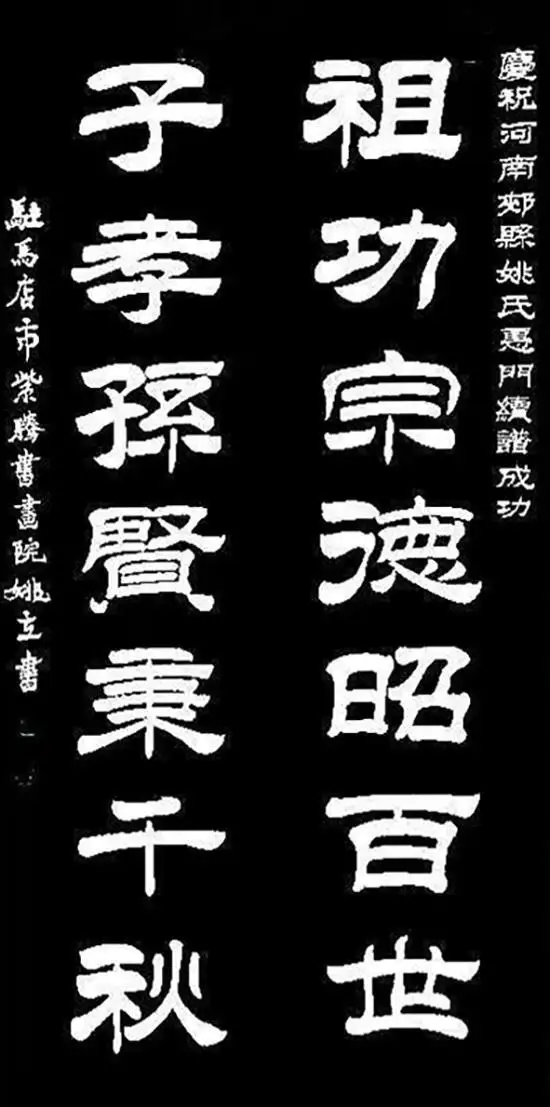 慶祝河南郟縣姚氏惠門續譜成功
祖功宗德昭百世
子孝孫賢秉千秋
駐馬店市紫騰書畫院姚立書